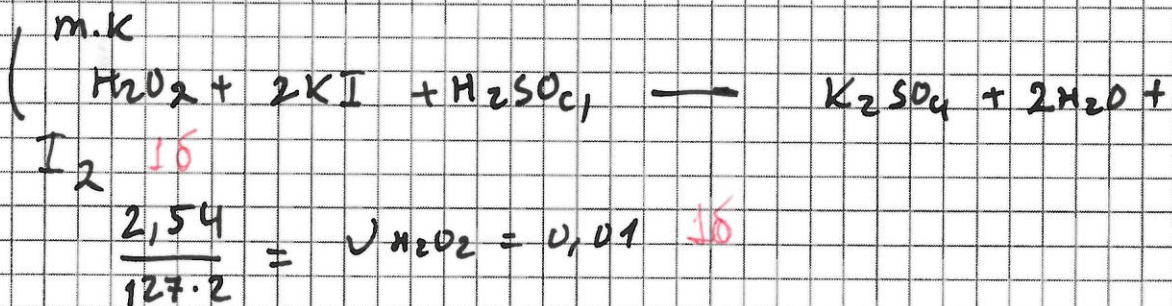 ( т.к
H2O2 + 2KI + H2SO4 — K2SO4 + 2H2O +
I2 1б
2,54 / 127·2 = νH2O2 = 0,01 1б